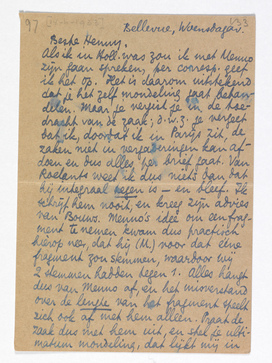 97
133
Bellevue, Woensdagav.
Beste Henny,
Als ik in Holl. was zou ik met Menno
zijn gaan spreken; per corresp. geef
ik het op. Het is daarom uitstekend
dat je het zelf mondeling gaat behan-
delen. Maar je vergist je in de toe-
dracht van de zaak; d.w.z. je vergeet
dat ik, doordat ik in Parijs zit, de
zaken niet in vergaderingen kan af-
doen en dus alles per brief gaat. Van
Roelants weet ik dus niets dan dat
hij integraal tegen is — en bleef. Ik
schrijf hem nooit, en kreeg zijn advies
van Bouws. Menno's idee om een frag-
ment te nemen kwam dus practisch
hierop neer, dat hij (M.) voor dat ééne
fragment zou stemmen, waardoor wij
2 stemmen hadden tegen 1. Alles hangt
dus van Menno af, en het misverstand
over de lengte van het fragment speelt
zich ook af met hem alleen. Praat de
zaak dus met hem uit, en stel je ulti-
matum mondeling, dat lijkt mij in